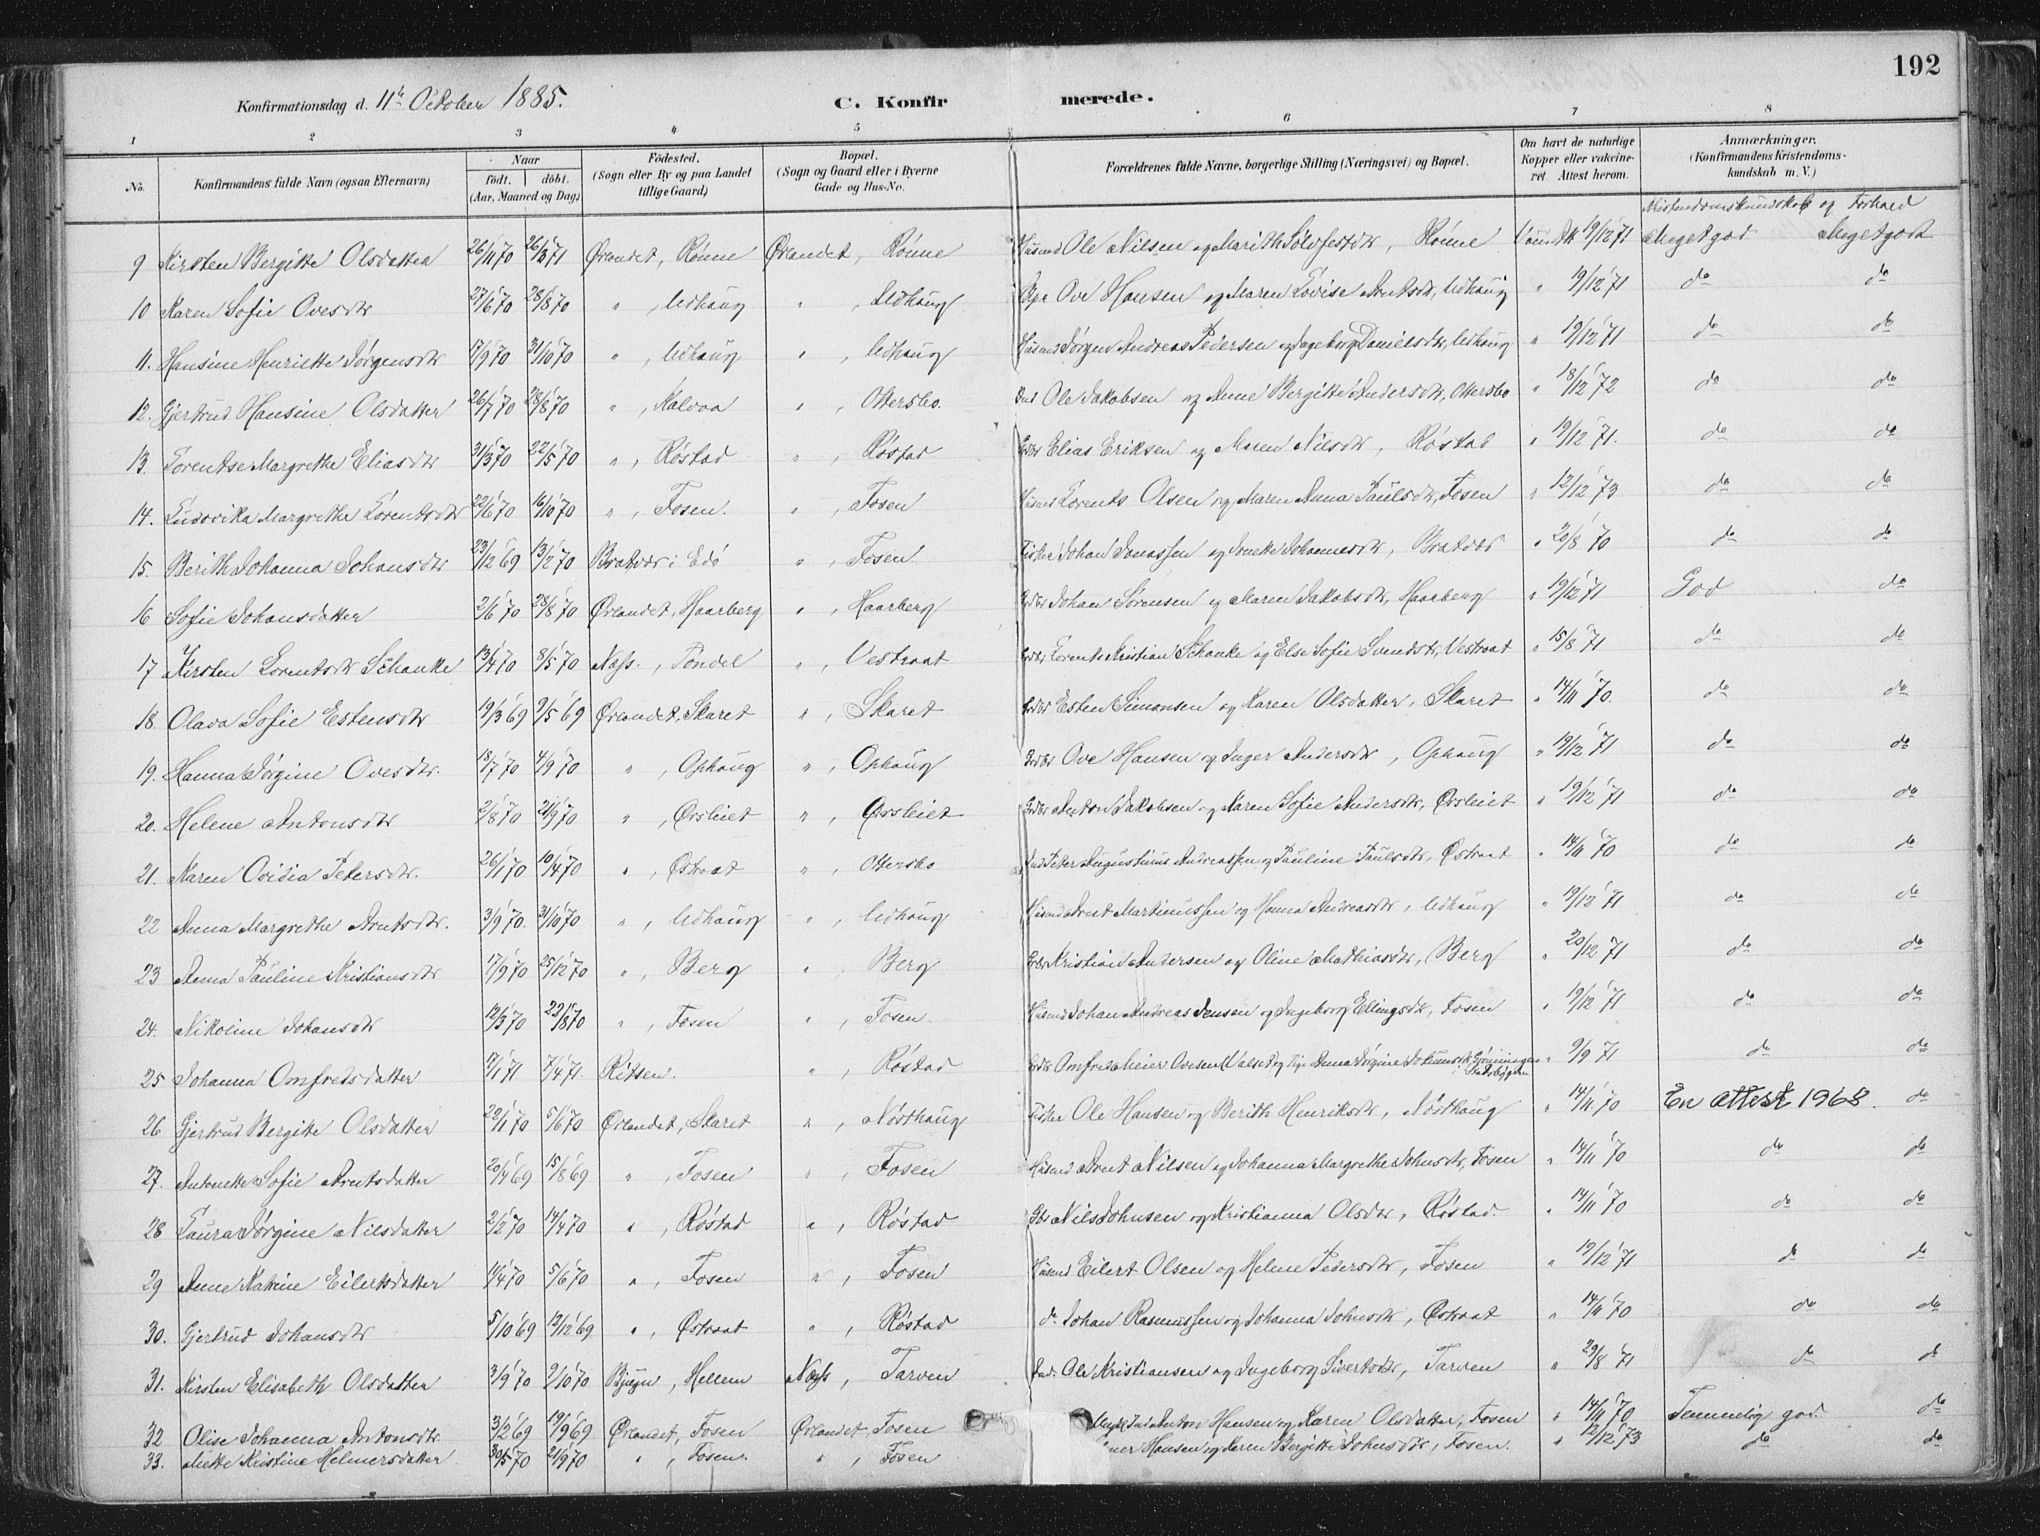 192
Konfirmationsdag d. 11te October 1885. C. Konfirmerede.
1 2 3 4 5 6 7 8
No. Konfirmandens fulde Navn (ogsaa Efternavn) Naar födt. döbt. (Aar, Maaned og Dag) Födested. (Sogn eller By og paa Landet tillige Gaard) Bopæl. (Sogn og Gaard eller i Byerne Gade og Hus-No. Forældrenes fulde Navne, borgerlige Stilling (Næringsvei) og Bopæl. Om havt de naturlige Kopper eller vakcineret. Attest herom. Anmærkninger. (Konfirmandens Kristendomskundskab m. V.)
Kristendomskundskab og Forhold
9 Kirsten Bergitte Olsdatter 26/11 70 26/3 71 Ørlandet, Rønne Ørlandet, Rønne Husmd Ole Nilsen og Marith Sølvfestdtr, Rønne 19/12 71 Megetgod Megetgodt
10 Karen Sofie Ovesdtr 27/6 70 28/8 70 " , Udhaug " , Udhaug Ove Hansen og Maren Lovise Arntsdtr, Udhaug " 19/12 71 do do
11. Hansine Henriette Jørgensdtr 17/9 70 31/10 70 " , Udhaug " , Udhaug Husmd Jørgen Andreas Pedersen og Ingeborg Danielsdtr, Udhaug " 19/12 71 do do
12. Gjertrud Hansine Olsdatter 26/7 70 28/8 70 " , Kalvaa " , Ottersbo. Ind Ole Jakobsen og Anne Bergitte Andersdtr, Ottersbo " 18/12 72 do do
13. Lorentse Margrethe Eliasdtr 31/3 70 22/5 70 " , Røstad " , Røstad Gdbr Elias Eriksen og Maren Nilsdtr, Røstad " 19/12 71. do do
14. Ludovika Margrethe Lorentsdtr 22/6 70 16/10 70 " , Fosen. " , Fosen Husmd Lorents Olsen og Maren Anna Paulsdtr, Fosen " 12/12 73 do do
15. Berith Johanna Johansdtr 23/12 69 13/2 70 Bratvær i Edö " , Fosen Fisker Johan Jonassen og Anette Johannesdtr, Bratvær " 20/8 70 do do
16 Sofie Johansdatter 2/6 70 28/8 70 Ørlandet, Haarberg " , Haarberg Gdbr Johan Sørensen og Maren Jakobsdtr, Haarberg " 19/12 71 God do
17 Kirsten Lorentsdtr Schanke 13/4 70 8/5 70 Næss, Tøndel " , Vestraat Gdbr Lorents Kristian Schanke og Else Sofie Svendsdtr, Vestraat " 15/8 71 do do
18. Olava Sofie Estensdtr 19/3 69 9/5 69 Ørlandet, Skaret " , Skaret Gdbr Esten Simonsen og Karen Olsdatter, Skaret " 14/11 70. do do
19. Hanna Jørgine Ovesdtr. 18/7 70 4/9 70 " , Ophaug " , Ophaug Gdbr Ove Hansen og Inger Andersdtr, Ophaug " 19/12 71 do do
20. Helene Antonsdtr 2/8 70 21/9 70 " , Ørsleiet " , Ørsleiet Gdbr Anton Jakobsen og Karen Sofie Andersdtr, Ørsleiet " 19/12 71 do do
21. Karen Ovidia Petersdtr. 26/1 70 10/4 70 " , Østraat " , Ottersbo Ind Peter Augustinus Andreassen og Pauline Paulsdtr, Østraat " 14/11 70 do do
22 Anna Margrethe Arntsdtr. 3/9 70. 31/10 70 " , Udhaug " , Udhaug Husmd Arnt Martinussen og Hanna Andreasdtr, Udhaug " 19/12 71 do do
23 Anna Pauline Kristiansdtr 17/9 70 25/12 70 " , Berg " , Berg Gdbr Kristian Andersen og Oline Mathiasdtr, Berg " 20/12 71 do do
24. Nikoline Johansdtr 12/3 70 22/8 70 " , Fosen " , Fosen. Husmd Johan Andreas Jensen og Ingeborg Ellingsdtr, Fosen " 19/12 71 do do
25 Johanna Omfredsdatter 17/1 71 7/4 71. Ritsen. " , Røstad Gdbr Omfred Meier Ovesen (Valset) og Pige Anna Jørgine Grønningen Stadsbygden " 9/9 71 do do
26 Gjertrud Bergitte Olsdatter 22/1 70 5/6 70 Ørlandet, Skaret " , Nösthaug Fisker Ole Hansen og Berith Henriksdtr, Nösthaug " 14/11 70 En attest 1968. do
27. Antonette Sofie Arntsdatter 20/4 69 15/8 69 " , Fosen " , Fosen Husmd Arnt Nilsen og Johanna Margrethe Johnsdtr, Fosen " 14/11 70 do do
28 Laura Jørgine Nilsdatter 2/2 70 14/4 70 " , Røstad " , Røstad Gbr Nils Johnsen og Kristianna Olsdtr, Røstad. " 14/11 70 do do
29 Anne Katrine Eilertsdatter 11/4 70 5/6 70 " , Fosen " , Fosen Husmd Eilert Olsen og Helene Pedersdtr, Fosen " 19/12 71 do do
30. Gjertrud Johansdtr 5/10 69 12/12 69 " , Østraat " , Røstad do Johan Rasmussen og Johanna Johnsdtr, Østraat " 14/11 70 do do
31. Kirsten Elisabeth Olsdatter 3/9 70 2/10 70 Bjugn, Hellem Næss, Tarven Ind. Ole Kristiansen og Ingeborg Sivertsdtr, Tarven " 29/8 71 do do
32 Olise Johanna Antonsdtr 3/2 69 19/9 69 Ørlandet, Fosen Ørlandet, Fosen Anton Hansen og Karen Olsdatter, Fosen " 14/11 70 Temmelig god do
33. Mette Kristine Helmersdatter 30/5 70 21/9 70 " , Fosen. " , Fosen Hansen og Karen Bergitte Johnsdtr, Fosen. " 12/12 73 do do